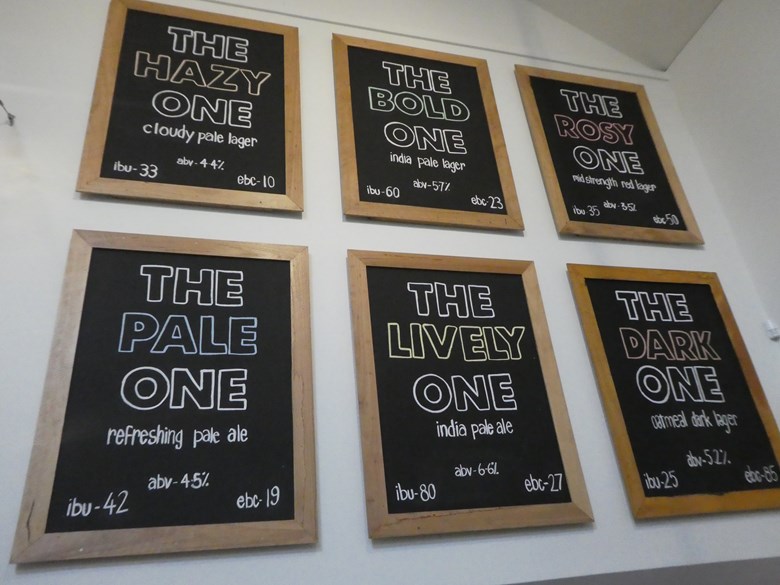 THE
HAZY
ONE
cloudy pale lager
abv-4.4%
ibu-33
ebc-10
THE
BOLD
ONE
india pale lager
abv-5.7%
ibu-60
ebc-23
THE
ROSY
ONE
mid strength red lager
abv-3.5%
ibu-35
ebc-50
THE
PALE
ONE
refreshing pale ale
abv-4.5%
ibu-42
ebc-19
THE
LIVELY
ONE
india pale ale
abv-6.6%
ibu-80
ebc-27
THE
DARK
ONE
oatmeal dark lager
abv-5.2%
ibu-25